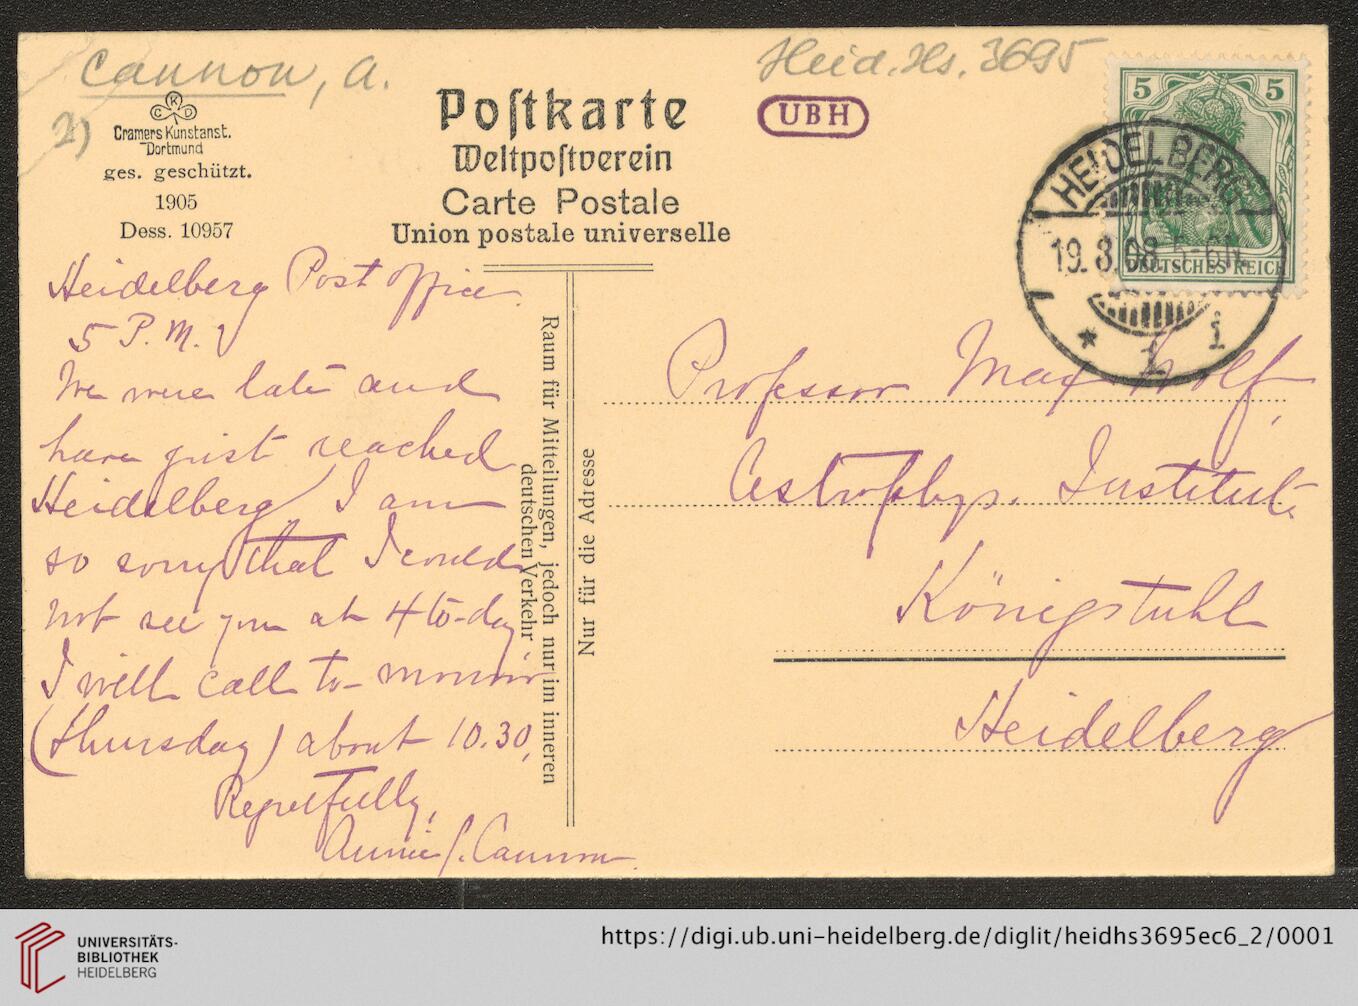 Cannon, A.
2)
CKD
Cramers Kunstanst.
Dortmund
ges. geschützt.
1905
Dess. 10957
Postkarte
Weltpostverein
Carte Postale
Union postale universelle
Heid. Hs. 3695
UBH
5 5
DEUTSCHES REICH
HEIDELBERG
19.8.08. 5-6N.
* 1 i
Heidelberg Post Office
5 P. M.
We were late and
have just reached
Heidelberg I am
so sorry that I could
not see you at 4 to-day
I will call to-morrow
(Thursday) about 10.30,
Regretfully,
Annie J. Cannon
Raum für Mitteilungen, jedoch nur im inneren
deutschen Verkehr
Nur für die Adresse
Professor Max Wolf,
Astrophys. Institut
Königstuhl
Heidelberg
UNIVERSITÄTS-
BIBLIOTHEK
HEIDELBERG
https://digi.ub.uni-heidelberg.de/diglit/heidhs3695ec6_2/0001